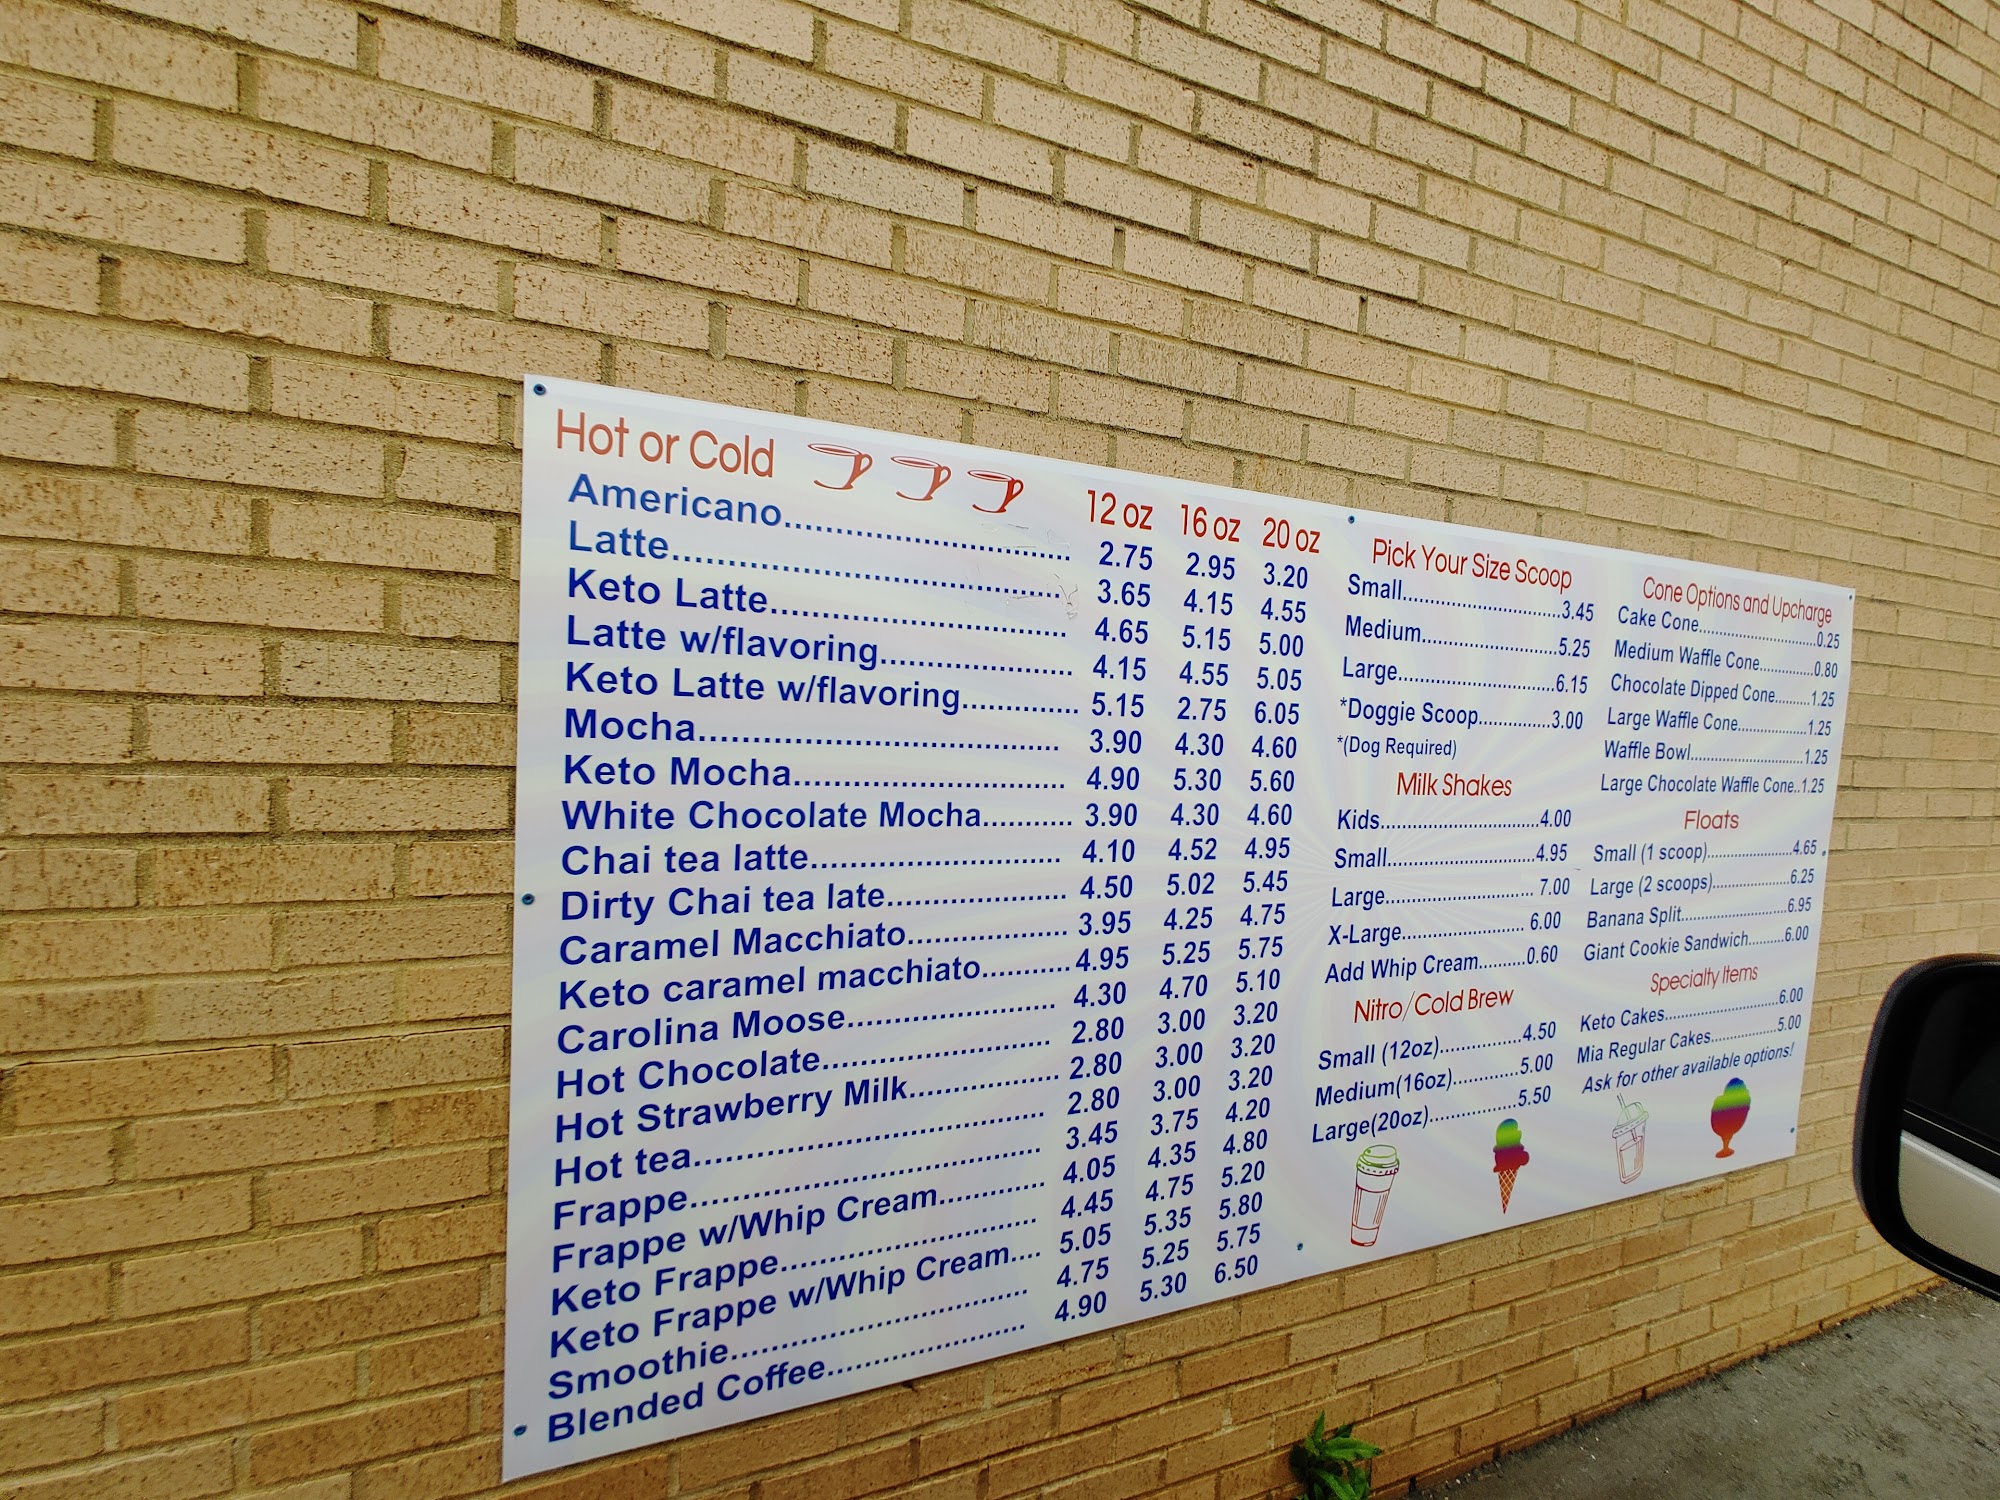 Hot or Cold 12 oz 16 oz 20 oz
Americano.............................. 2.75 2.95 3.20
Latte........................................ 3.65 4.15 4.55
Keto Latte............................... 4.65 5.15 5.00
Latte w/flavoring.................... 4.15 4.55 5.05
Keto Latte w/flavoring............ 5.15 2.75 6.05
Mocha..................................... 3.90 4.30 4.60
Keto Mocha............................. 4.90 5.30 5.60
White Chocolate Mocha........... 3.90 4.30 4.60
Chai tea latte........................... 4.10 4.52 4.95
Dirty Chai tea late.................... 4.50 5.02 5.45
Caramel Macchiato................... 3.95 4.25 4.75
Keto caramel macchiato........... 4.95 5.25 5.75
Carolina Moose........................ 4.30 4.70 5.10
Hot Chocolate.......................... 2.80 3.00 3.20
Hot Strawberry Milk................. 2.80 3.00 3.20
Hot tea..................................... 2.80 3.00 3.20
Frappe..................................... 3.45 3.75 4.20
Frappe w/Whip Cream............. 4.05 4.35 4.80
Keto Frappe............................. 4.45 4.75 5.20
Keto Frappe w/Whip Cream.... 5.05 5.35 5.80
Smoothie................................. 4.75 5.25 5.75
Blended Coffee........................ 4.90 5.30 6.50
Pick Your Size Scoop
Small.............................3.45
Medium.........................5.25
Large.............................6.15
*Doggie Scoop...............3.00
*(Dog Required)
Milk Shakes
Kids................................4.00
Small..............................4.95
Large.............................. 7.00
X-Large......................... 6.00
Add Whip Cream..........0.60
Nitro/Cold Brew
Small (12oz)................4.50
Medium(16oz).............5.00
Large(20oz).................5.50
Cone Options and Upcharge
Cake Cone...........................0.25
Medium Waffle Cone.............0.80
Chocolate Dipped Cone..........1.25
Large Waffle Cone.................1.25
Waffle Bowl...........................1.25
Large Chocolate Waffle Cone..1.25
Floats
Small (1 scoop)....................4.65
Large (2 scoops)..................6.25
Banana Split.........................6.95
Giant Cookie Sandwich.........6.00
Specialty Items
Keto Cakes..........................6.00
Mia Regular Cakes...............5.00
Ask for other available options!